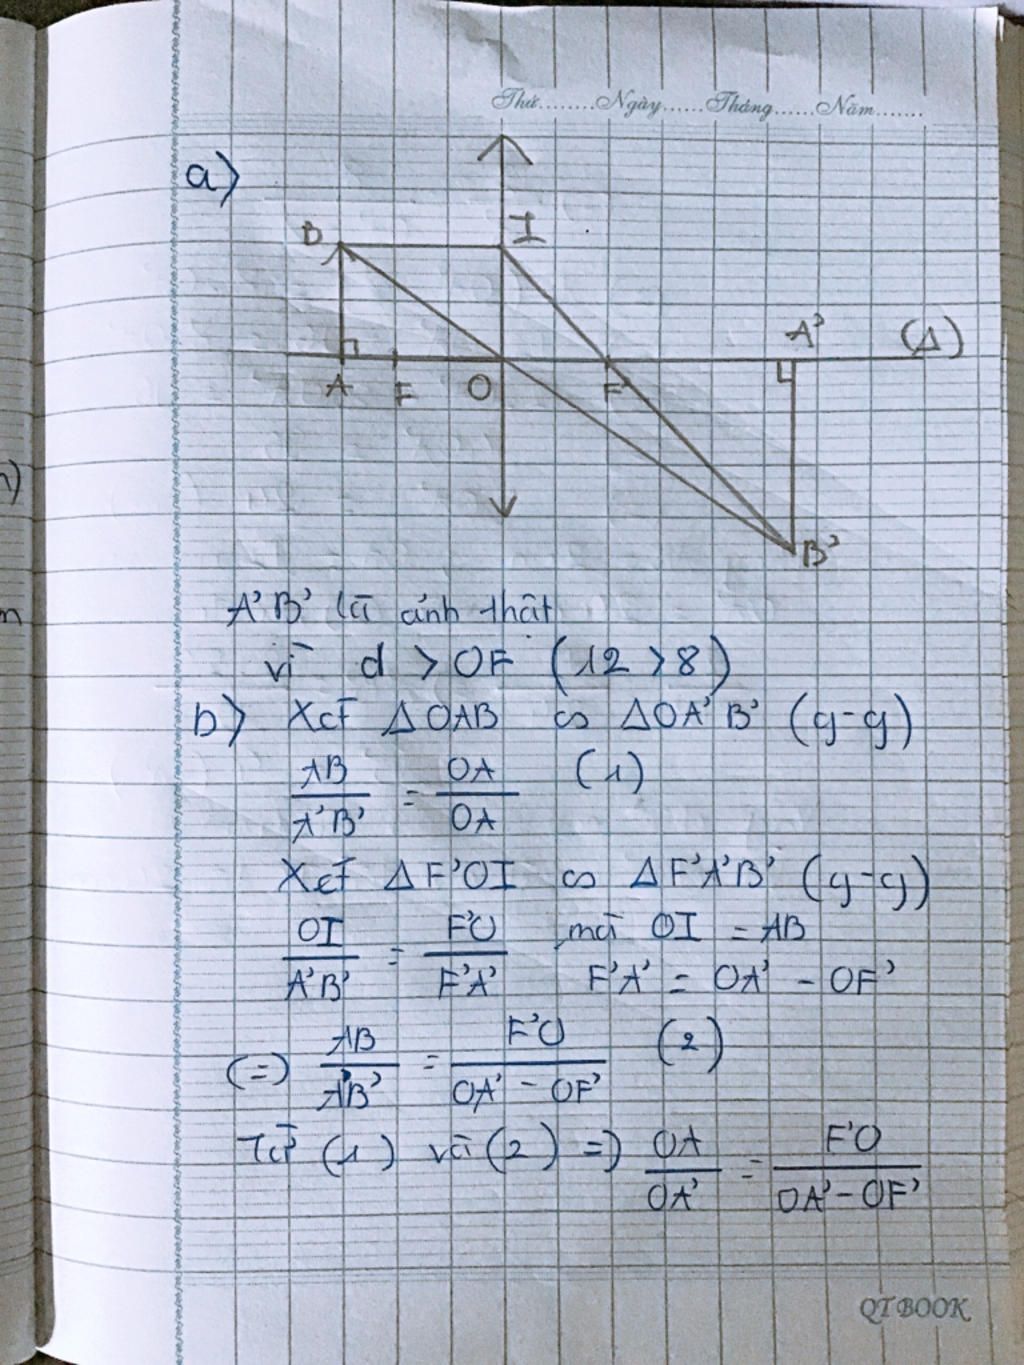 Thứ........Ngày......Tháng......Năm.......
a)
B I
A' (Δ)
A F O F'
B'
A'B' là ảnh thật
vì d > OF (12 > 8)
b) Xét Δ OAB ∽ ΔOA'B' (g-g)
AB/A'B' = OA/OA (1)
Xét Δ F'OI ∽ Δ F'A'B' (g-g)
OI/A'B' = F'O/F'A' mà OI = AB
F'A' = OA' - OF'
(=) AB/A'B' = F'O/OA' - OF' (2)
Từ (1) và (2) =) OA/OA' = F'O/OA' - OF'
QTBOOK